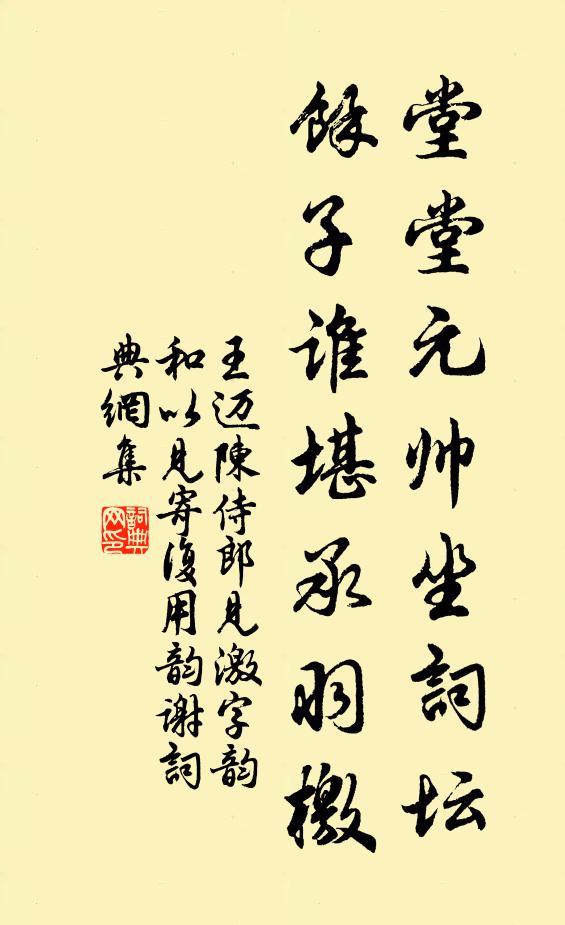 堂堂元帅坐詞坛
餘子誰堪承羽檄
王迈陳侍郎見激字韵
和以見寄復用韵谢詞
典網集
詞典
网印